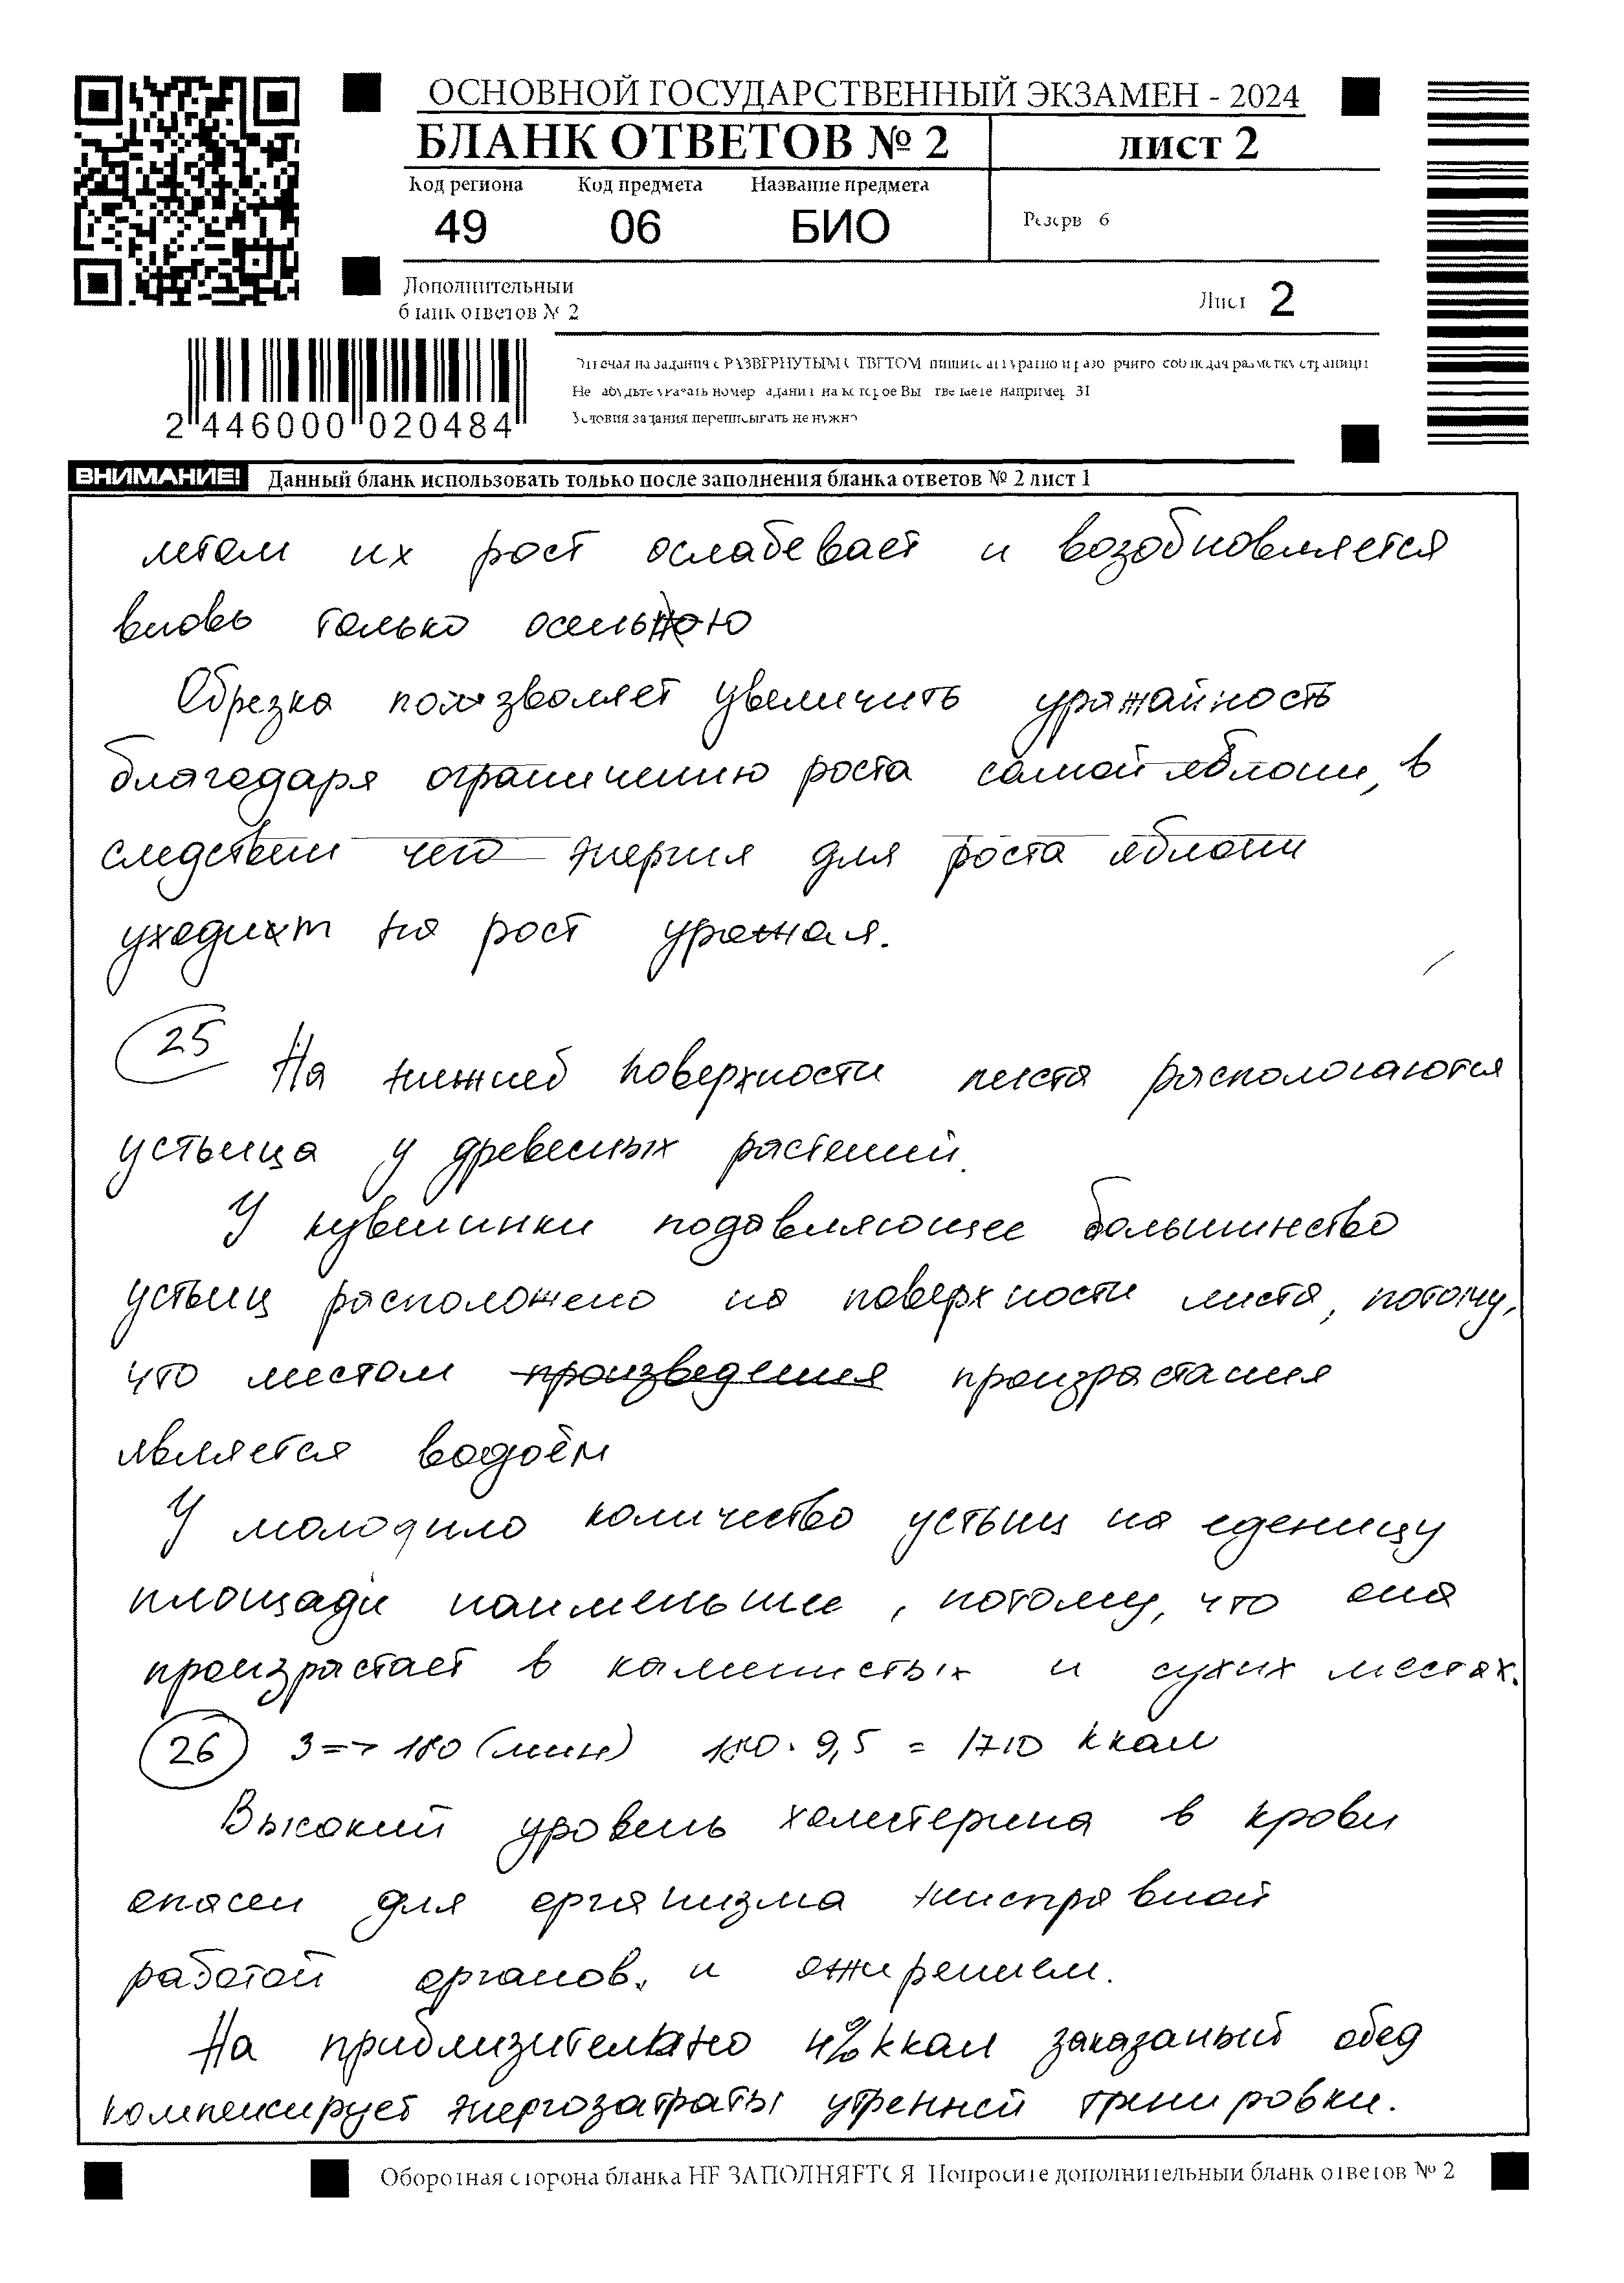 ОСНОВНОЙ ГОСУДАРСТВЕННЫЙ ЭКЗАМЕН - 2024
БЛАНК ОТВЕТОВ № 2
лист 2
Код региона Код предмета Название предмета
49 06 БИО
Резерв 6
Дополнительный
бланк ответов № 2
Лист 2
2 446000 020484
Отвечая на задания с РАЗВЕРНУТЫМ ОТВЕТОМ пишите аккуратно и разборчиво соблюдая разметку страницы
Не забудьте указать номер задания на которое Вы отвечаете например 31
Условия задания переписывать не нужно
ВНИМАНИЕ! Данный бланк использовать только после заполнения бланка ответов № 2 лист 1
летом их рост ослабевает и возобновляется
вновь только осенью
Обрезка позволяет увеличить урожайность
благодаря ограничению роста самой яблони, в
следствии чего энергия для роста яблони
уходит на рост урожая.
25 На нижней поверхности листа распологаются
устьица у древесных растений.
У кувшинки подавляющее большинство
устьиц расположено на поверхности листа, потому,
что местом произведения произрастания
является водоём
У молодило количество устьиц на еденицу
площади наименьшее, потому, что она
произрастает в каменистых и сухих местах.
26 3 => 180 (мин) 180 · 9,5 = 1710 ккал
Высокий уровень холестерина в крови
опасен для организма неисправной
работой органов. и ожирением.
На приблизительно 4% ккал заказаный обед
компенсирует энергозатраты утренней тренировки.
Оборотная сторона бланка НЕ ЗАПОЛНЯЕТСЯ Попросите дополнительный бланк ответов № 2